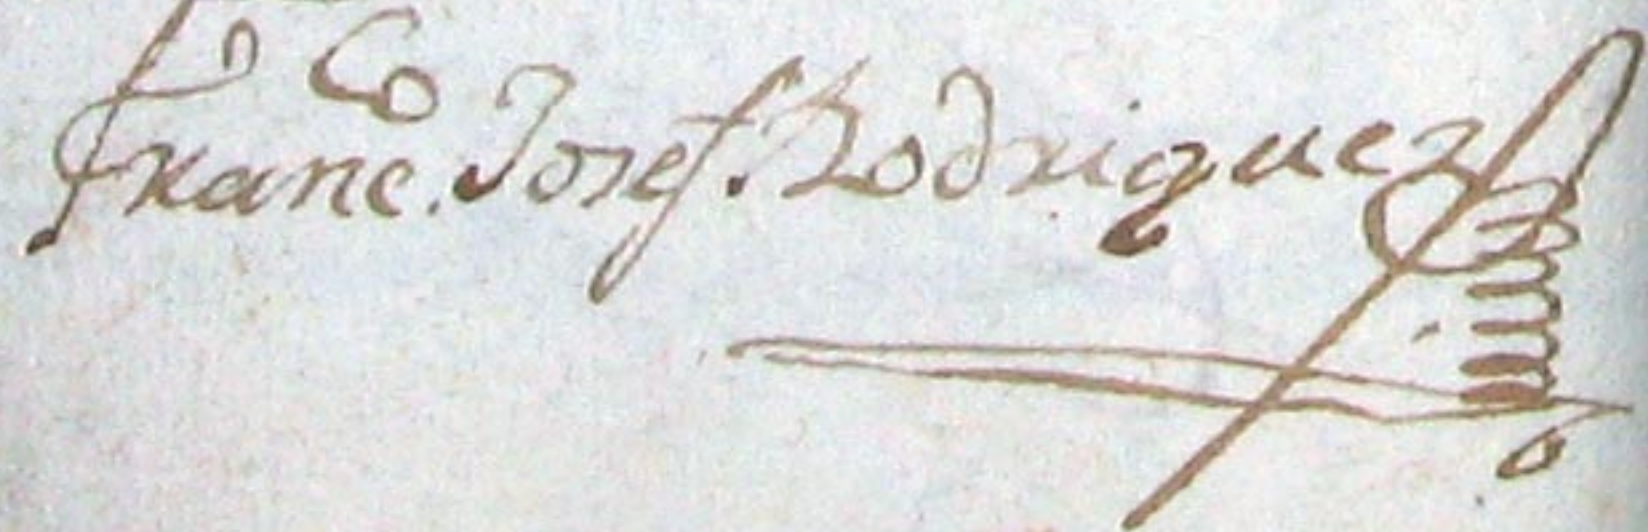 Franc.co Josef. Rodriguez